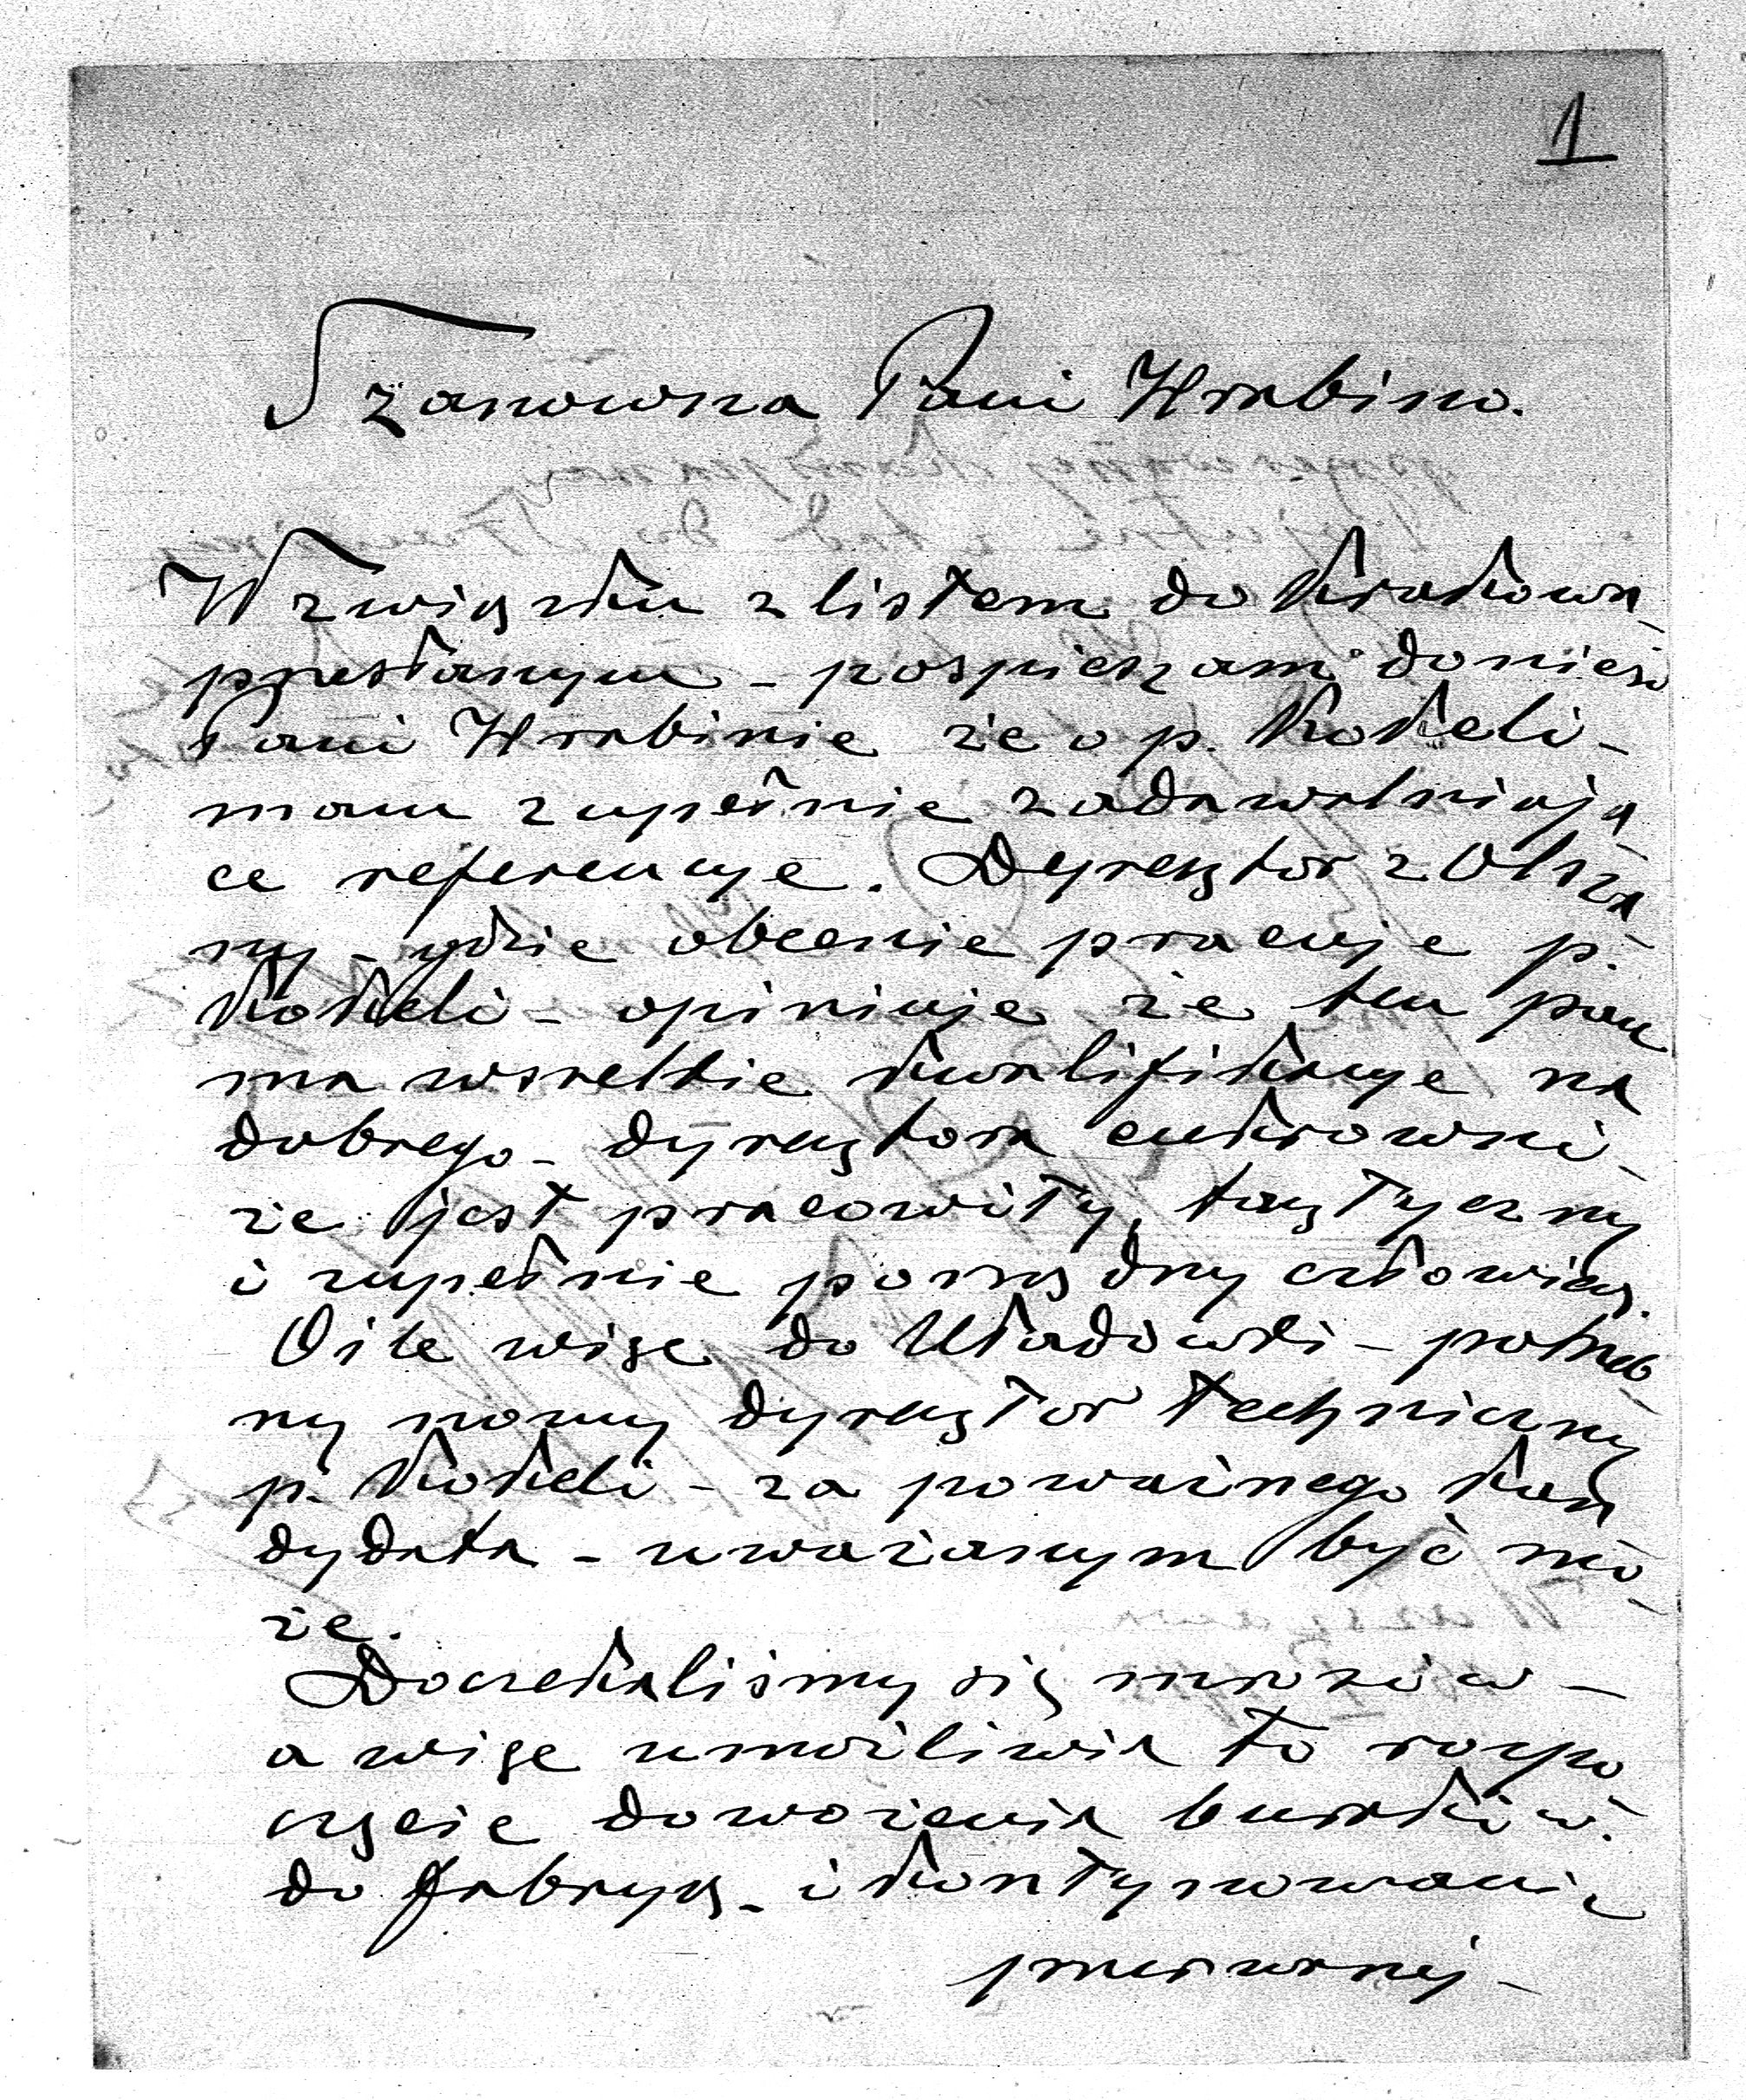 1
Szanowna Pani Hrabino.
W związku z listem do Krakowa
przesłanym - pospieszam donieść
Pani Hrabinie że o p. Kokeli -
mam zupełnie zadawalniają
ce referencye. Dyrektor z Olsza
ny - gdzie obecnie pracuje p.
Kokeli - opiniuje że ten pan
ma wszelkie kwalifikacye na
dobrego - dyrektora cukrowni -
że jest pracowity, taktyczny
i zupełnie porządny człowiek.
O ile więc do Uładówki - potrzeb
ny nowy dyrektor techniczny
p. Kokeli - za poważnego kan
dydata - uważanym być mo-
że.
Doczekaliśmy się mrozów -
a więc umożliwia to rozpo
częcie dowożenia buraków.
do fabryk - i kontynuowanie
przerwanej -